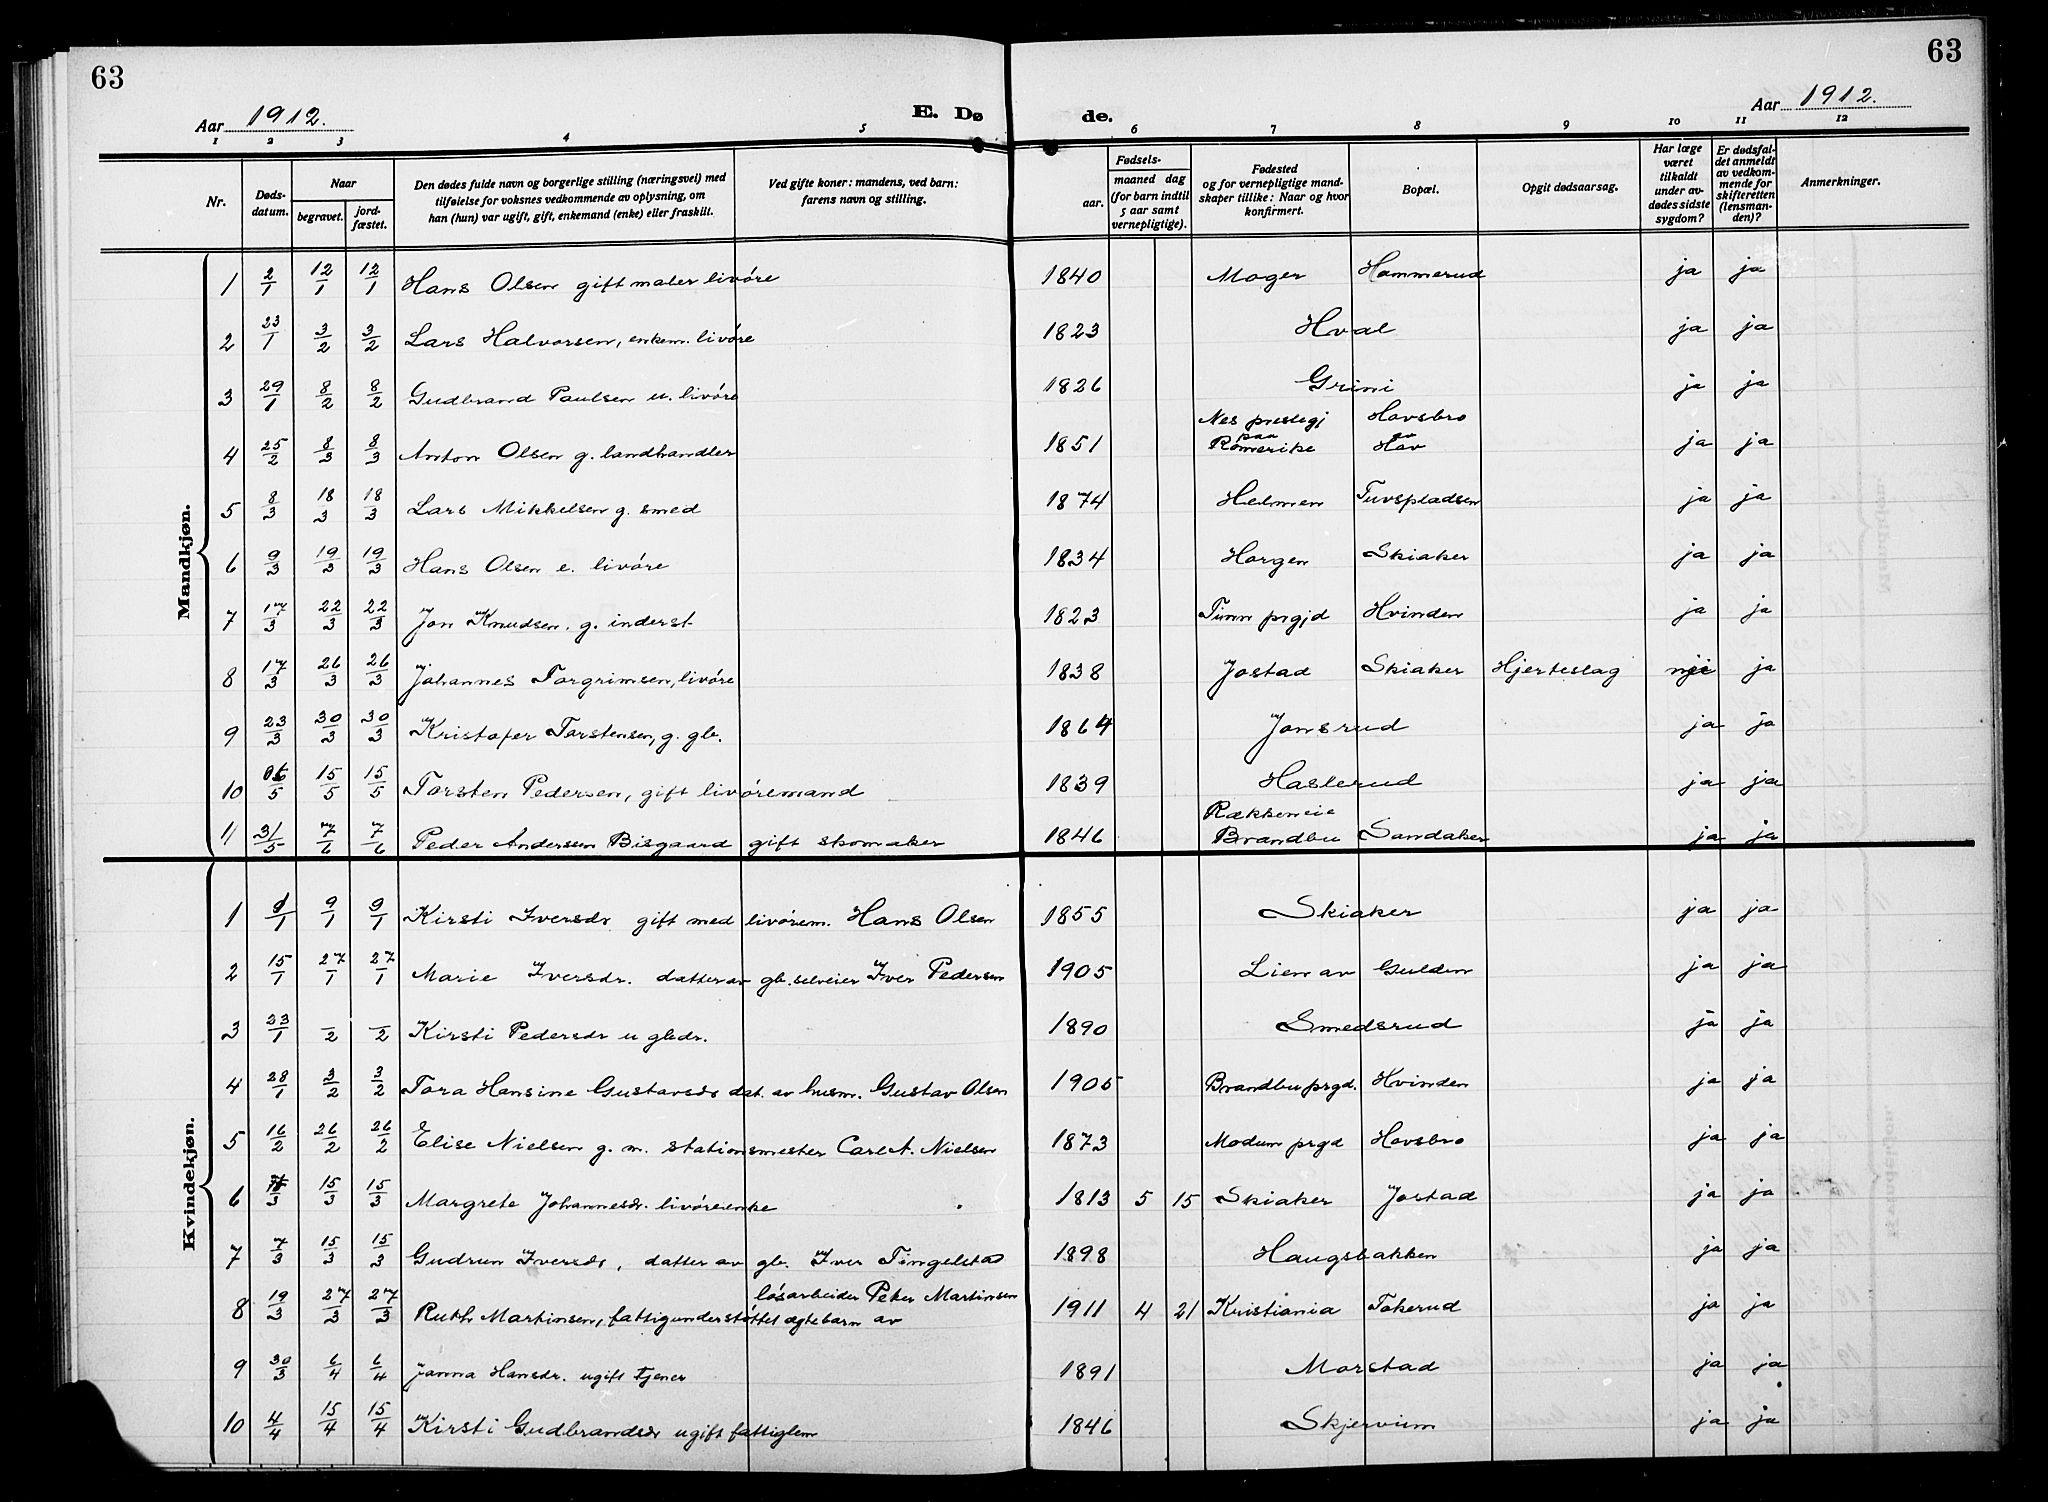 63
63
Aar 1912.
E. Dø
de.
Aar 1912.
1 2 3 4 5 6 7 8 9 10 11 12
Nr.
Døds-
datum.
Naar
begravet.
jord-
fæstet.
Den dødes fulde navn og borgerlige stilling (næringsvei) med
tilføielse for voksnes vedkommende av oplysning, om
han (hun) var ugift, gift, enkemand (enke) eller fraskilt.
Ved gifte koner: mandens, ved barn:
farens navn og stilling.
Fødsels-
aar.
maaned dag
(for barn indtil
5 aar samt
vernepligtige).
Fødested
og for vernepligtige mand-
skaper tillike: Naar og hvor
konfirmert.
Bopæl.
Opgit dødsaarsag.
Har læge
været
tilkaldt
under av-
dødes sidste
sygdom?
Er dødsfal-
det anmeldt
av vedkom-
mende for
skifteretten
(lensman-
den)?
Anmerkninger.
Mandkjøn.
1 2/1 12/1 12/1 Hans Olsen gift maler livøre 1840 Moger Hammerud ja ja
2 23/1 3/2 3/2 Lars Halvorsen, enkem. livøre 1823 Hval ja ja
3 29/1 8/2 8/2 Gudbrand Paulsen u. livøre 1826 Grini ja ja
4 25/2 8/3 8/3 Anton Olsen g. landhandler 1851 Nes prestegj paa Romerike Hovsbro av Hov ja ja
5 8/3 18/3 18/3 Lars Mikkelsen g. smed 1874 Helmen Tuvspladsen ja ja
6 9/3 19/3 19/3 Hans Olsen e. livøre 1834 Horgen Skiaker ja ja
7 17/3 22/3 22/3 Jon Knudsen. g. inderst 1823 Tinn prgjd Hvinden ja ja
8 17/3 26/3 26/3 Johannes Torgrimsen, livøre 1838 Jostad Skiaker Hjerteslag nei ja
9 23/3 30/3 30/3 Kristofer Torstensen, g. gbr. 1864 Jonsrud ja ja
10 /5 15/5 15/5 Torsten Pedersen, gift livøremand 1839 Haslerud ja ja
11 31/5 7/6 7/6 Peder Andersen Bisgaard gift skomaker 1846 Rækkeneie Brandbu Sandaker ja ja
Kvindekjøn.
1 1/1 9/1 9/1 Kirsti Iversdr gift med livørem. Hans Olsen 1855 Skiaker ja ja
2 15/1 27/1 27/1 Marie Iversdr. datter av gb. selveier Iver Pedersen 1905 Lien av Gulden ja ja
3 23/1 /2 /2 Kirsti Pedersdr u gbdr. 1890 Smedsrud ja ja
4 28/1 3/2 3/2 Tora Hansine Gustavsdr dat. av husm. Gustav Olsen 1905 Brandbu prgd. Hvinden ja ja
5 16/2 26/2 26/2 Elise Nielsen g. m. stationsmester Carl A. Nielsen 1873 Modum prgd Hovsbro ja ja
6 /3 15/3 15/3 Margrete Johannesdr. livøreenke 1813 5 15 Skiaker Jostad ja ja
7 7/3 15/3 15/3 Gudrun Iversdr, datter av gb. Iver Tingelstad 1898 Haugsbakken ja ja
8 19/3 27/3 27/3 Ruth Martinsen, fattigunderstøttet ægtebarn av løsarbeider Peter Martinsen 1911 4 21 Kristiania Tokerud ja ja
9 30/3 6/4 6/4 Janna Hansdr. ugift tjener 1891 Morstad ja ja
10 4/4 15/4 15/4 Kirsti Gudbrandsdr ugift fattiglem 1846 Skjervum ja ja